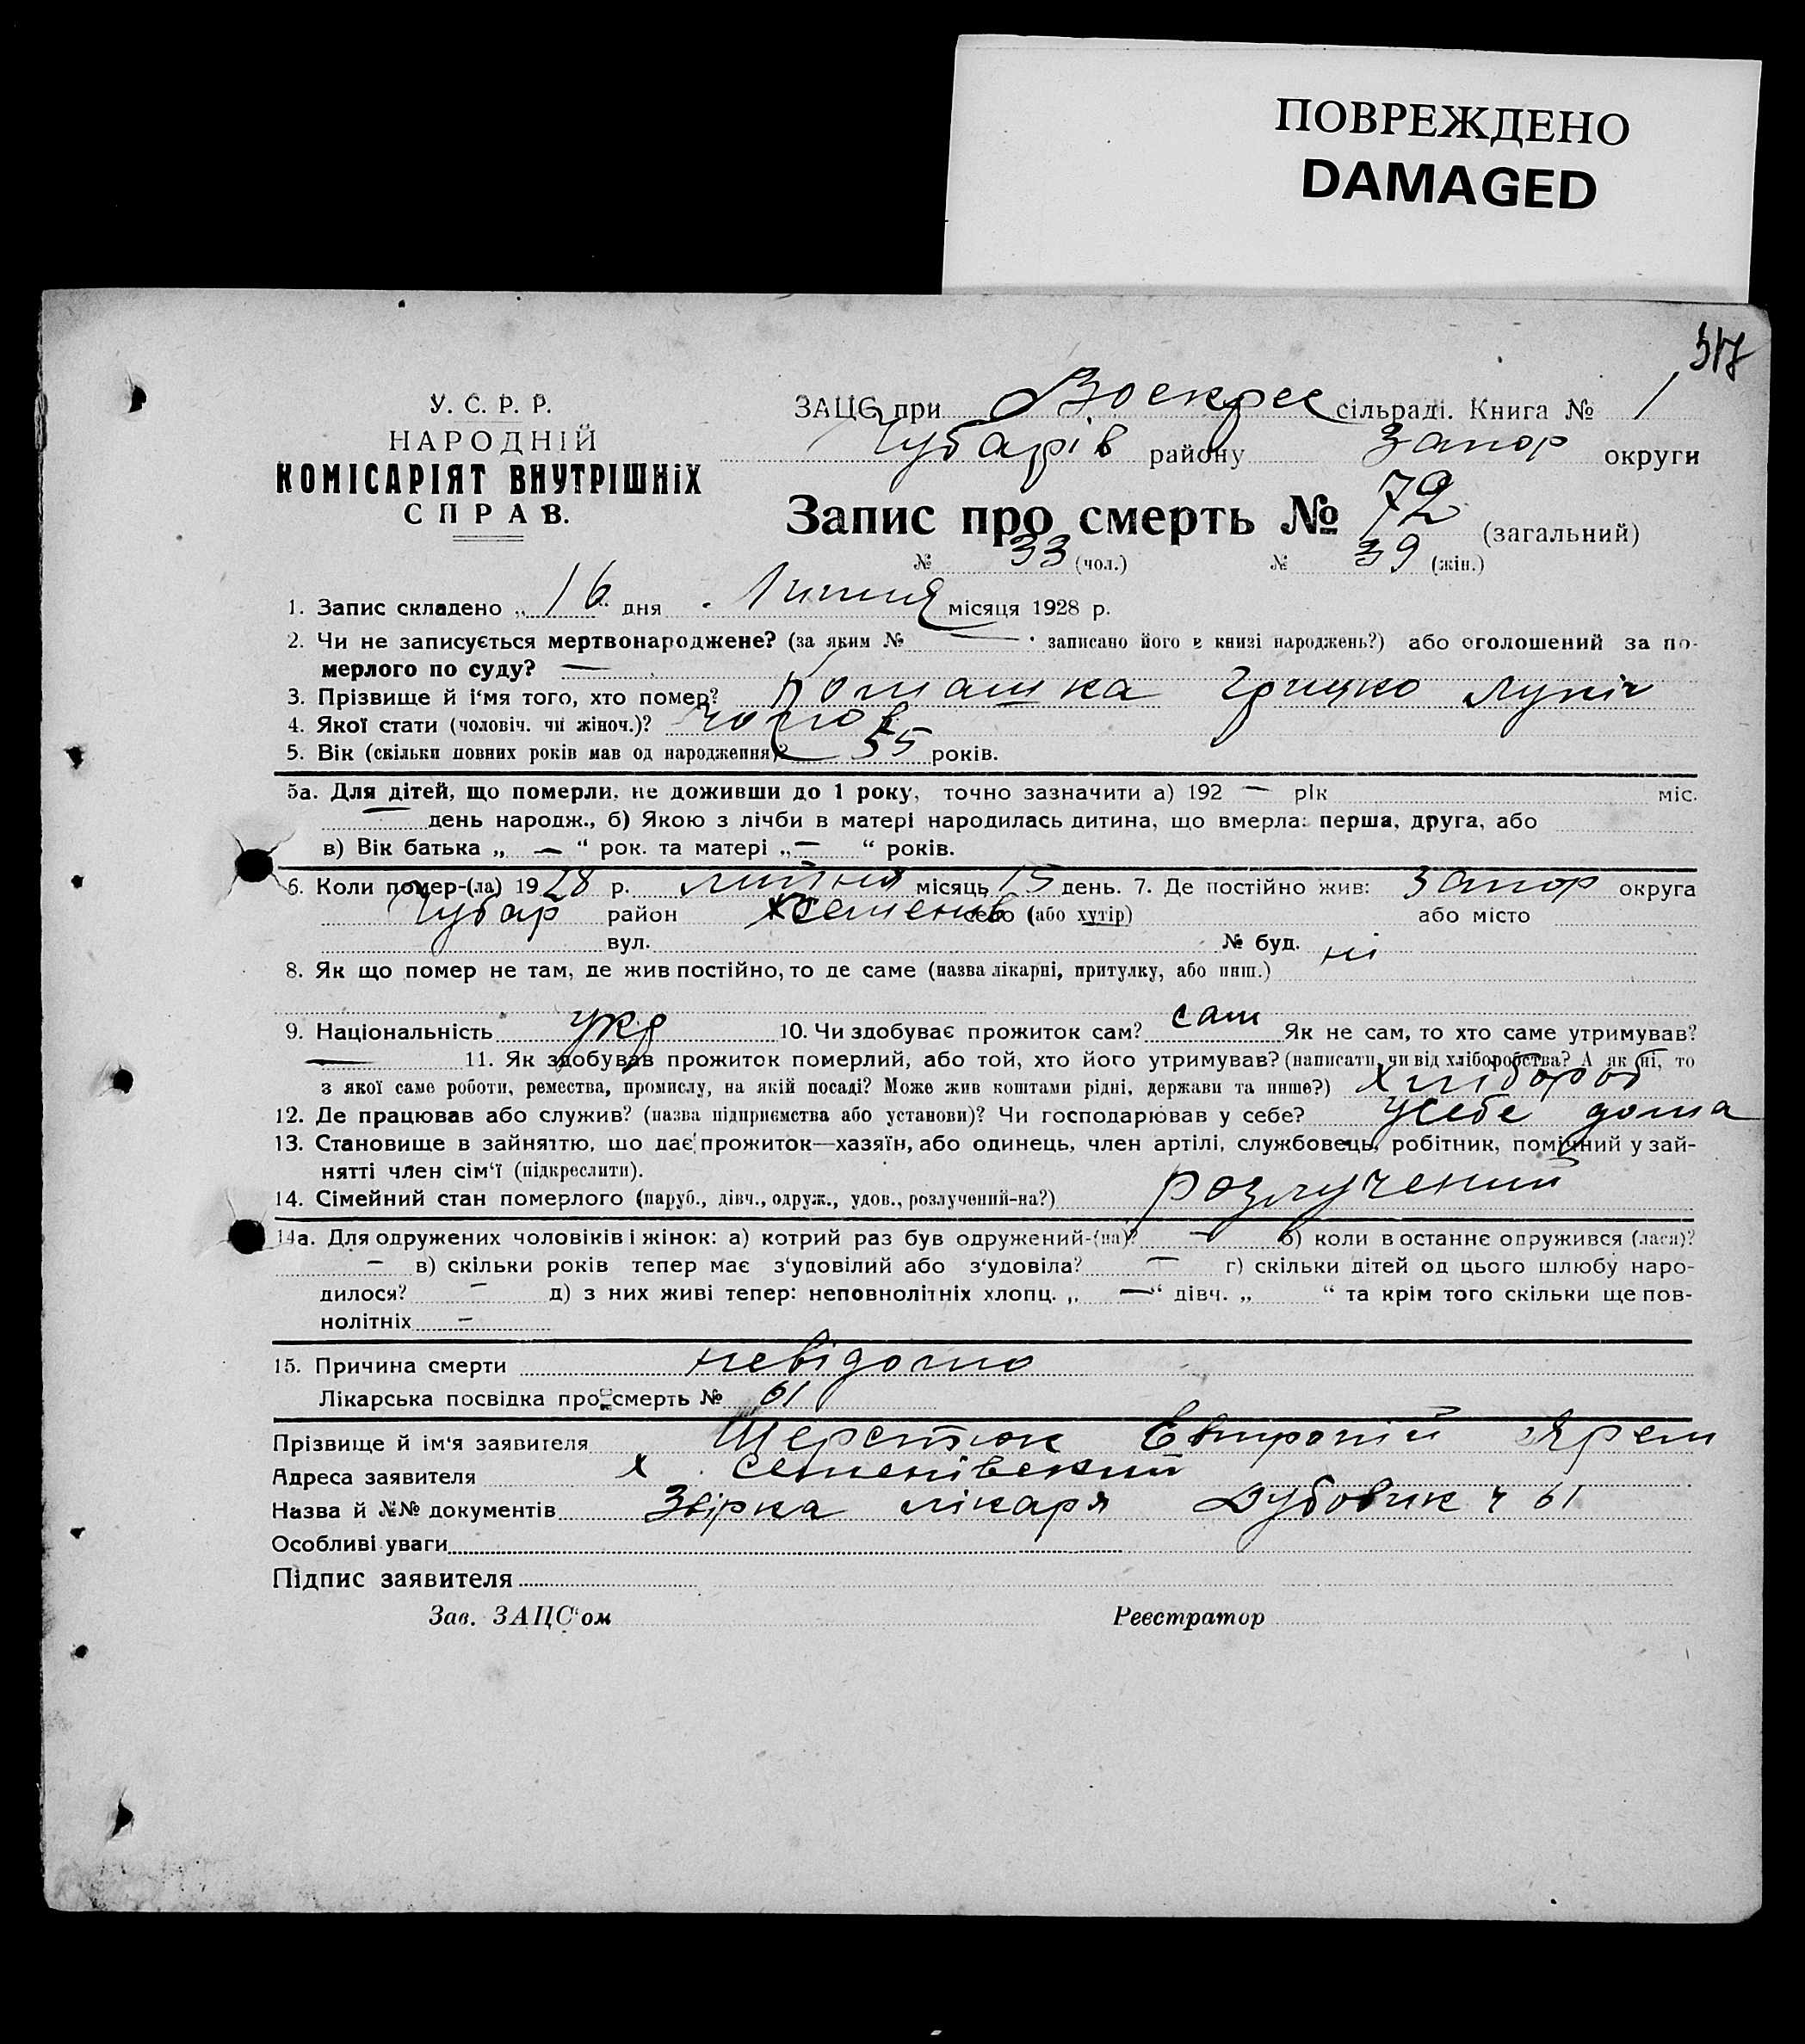 ПОВРЕЖДЕНО
DAMAGED
У. С. Р. Р.
НАРОДНІЙ
КОМІСАРІЯТ ВНУТРІШНІХ
СПРАВ.
ЗАЦС при Воскрес сільраді. Книга № 1
Чубарів району Запор округи
Запис про смерть № 72 (загальний)
№ 33 (чол.) № 39 (жін.)
1. Запис складено „ 16 " дня Липня місяця 1928 р.
2. Чи не записується мертвонароджене? (за яким № — записано його в книзі народжень?) або оголошений за по-
мерлого по суду? —
3. Прізвище й і'мя того, хто помер? Грицко
4. Якої стати (чоловіч. чи жіноч.)? чолов
5. Вік (скільки повних років мав од народження)? 55 років.
5а. Для дітей, що померли, не доживши до 1 року, точно зазначити а) 192 — рік міс.
— день народж., б) Якою з лічби в матері народилась дитина, що вмерла: перша, друга, або
в) Вік батька „ — “ рок. та матері „ — “ років.
6. Коли помер-(ла) 1928 р. липня місяць 15 день. 7. Де постійно жив: Запор округа
Чубар район х Семенів село (або хутір) або місто
вул. № буд.
8. Як що помер не там, де жив постійно, то де саме (назва лікарні, притулку, або инш.) ні
9. Національність укр 10. Чи здобуває прожиток сам? сам Як не сам, то хто саме утримував?
— 11. Як здобував прожиток померлий, або той, хто його утримував? (написати, чи від хліборобства? А як ні, то
з якої саме роботи, ремества, промислу, на якій посаді? Може жив коштами рідні, держави та инше?) Хлібороб
12. Де працював або служив? (назва підприємства або установи)? Чи господарював у себе? у себе дома
13. Становище в зайняттю, що дає прожиток—хазяїн, або одинець, член артілі, службовець, робітник, помічний у зай-
нятті член сім'ї (підкреслити).
14. Сімейний стан померлого (паруб., дівч., одруж., удов., розлучений-на?) розлучений
14а. Для одружених чоловіків і жінок: а) котрий раз був одружений-(на)? — б) коли в останнє одружився (лася)?
— в) скільки років тепер має з'удовілий або з'удовіла? — г) скільки дітей од цього шлюбу наро-
дилося? — д) з них живі тепер: неповнолітніх хлопц. „ — “ дівч. „ “ та крім того скільки ще пов-
нолітніх —
15. Причина смерти невідомо
Лікарська посвідка про смерть № 61
Прізвище й ім'я заявителя Шерстюк Ярем
Адреса заявителя х Семенівский
Назва й №№ документів лікаря Дубовик ч 61
Особливі уваги
Підпис заявителя
Зав. ЗАЦС'ом Реєстратор